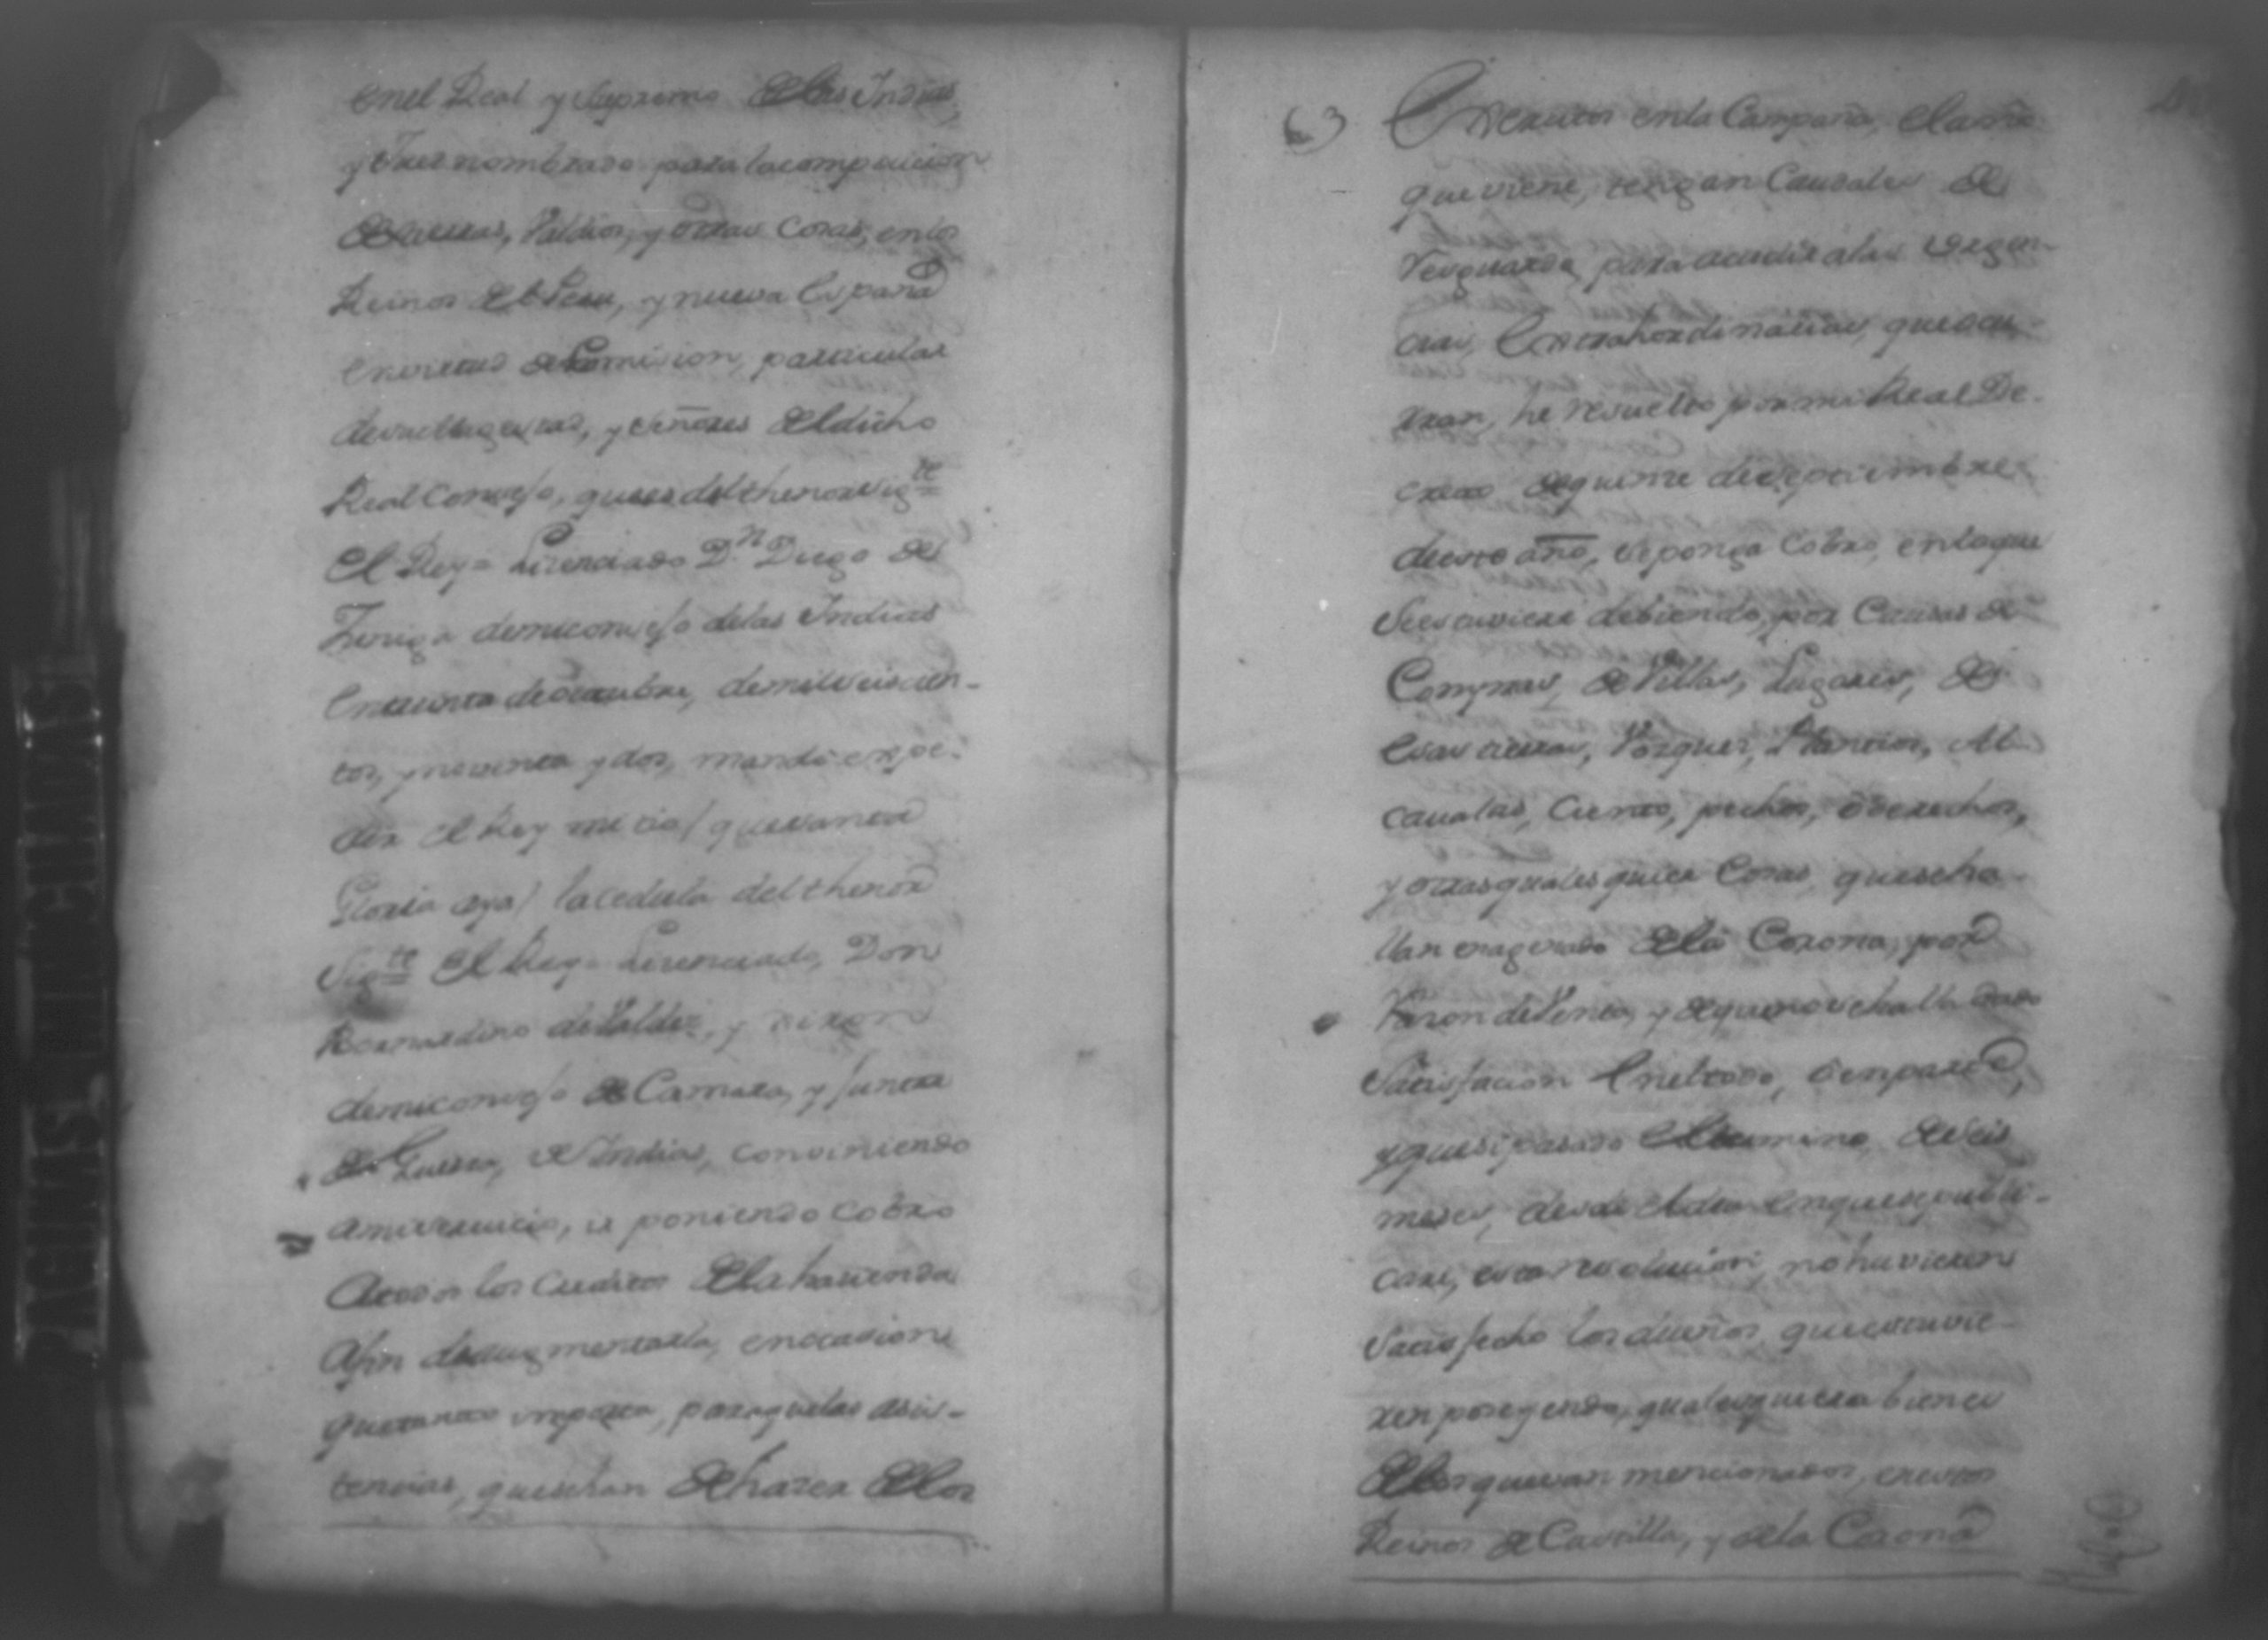 enel Real y Supremo de las Indias,
y Juez nombrado para la composicion
de tierras, Valdios, y otras cosas, en los
Reinos del Peru, y nueva España
en virtud de Comision, particular
de su Magestad, y señores del dicho
Real Consejo, que es del thenor sig.te
El Rey = Licenciado D.n Diego de
Zuñiga de mi consejo de las Indias
en treinta de octubre, de mil seiscien-
tos, y noventa y dos, mando expe-
dir el Rey mi tio / que santa
Gloria aya / la cedula del thenor
Sig.te El Rey = Licenciado, Don
Bernardino de Valdes, y
de mi consejo de Camara, y Junta
de Guerra, de Indias, conviniendo
a mi servicio, ir poniendo cobro
a todos los creditos de la hacienda
a fin de augmentarla, en ocasion
que tanto importa, para que las asis-
tencias, que se han de hazer a los
63 Exercitos en la Campaña, el año
que viene, tengan Caudales de
resguardo para acudir a las urgen-
cias, Extrahordinarias, que ocu-
rran, he resuelto por mi Real De-
creto de quince de septiembre
de este año, se ponga cobro, en lo que
se estuviere debiendo, por Causas de
Compras, de Villas, Lugares, de
esas tierras, Vosques, Plantios, Al-
caualas, Cientos, pechos, o derechos,
y otras quales quier Cosas, que se ha-
llan enagenado de la Corona, por
Razon de Venta, y de que no se ha lla dado
Satisfacion en el todo, o en parte,
y que si pasado el termino, de seis
meses, desde el dia en que se publi-
care, esta resolucion, no huvieren
Satisfecho los dueños, que estuvie-
ren poseyendo, qualesquiera bienes
de los que van mencionados, en estos
Reinos de Castilla, y de la Corona